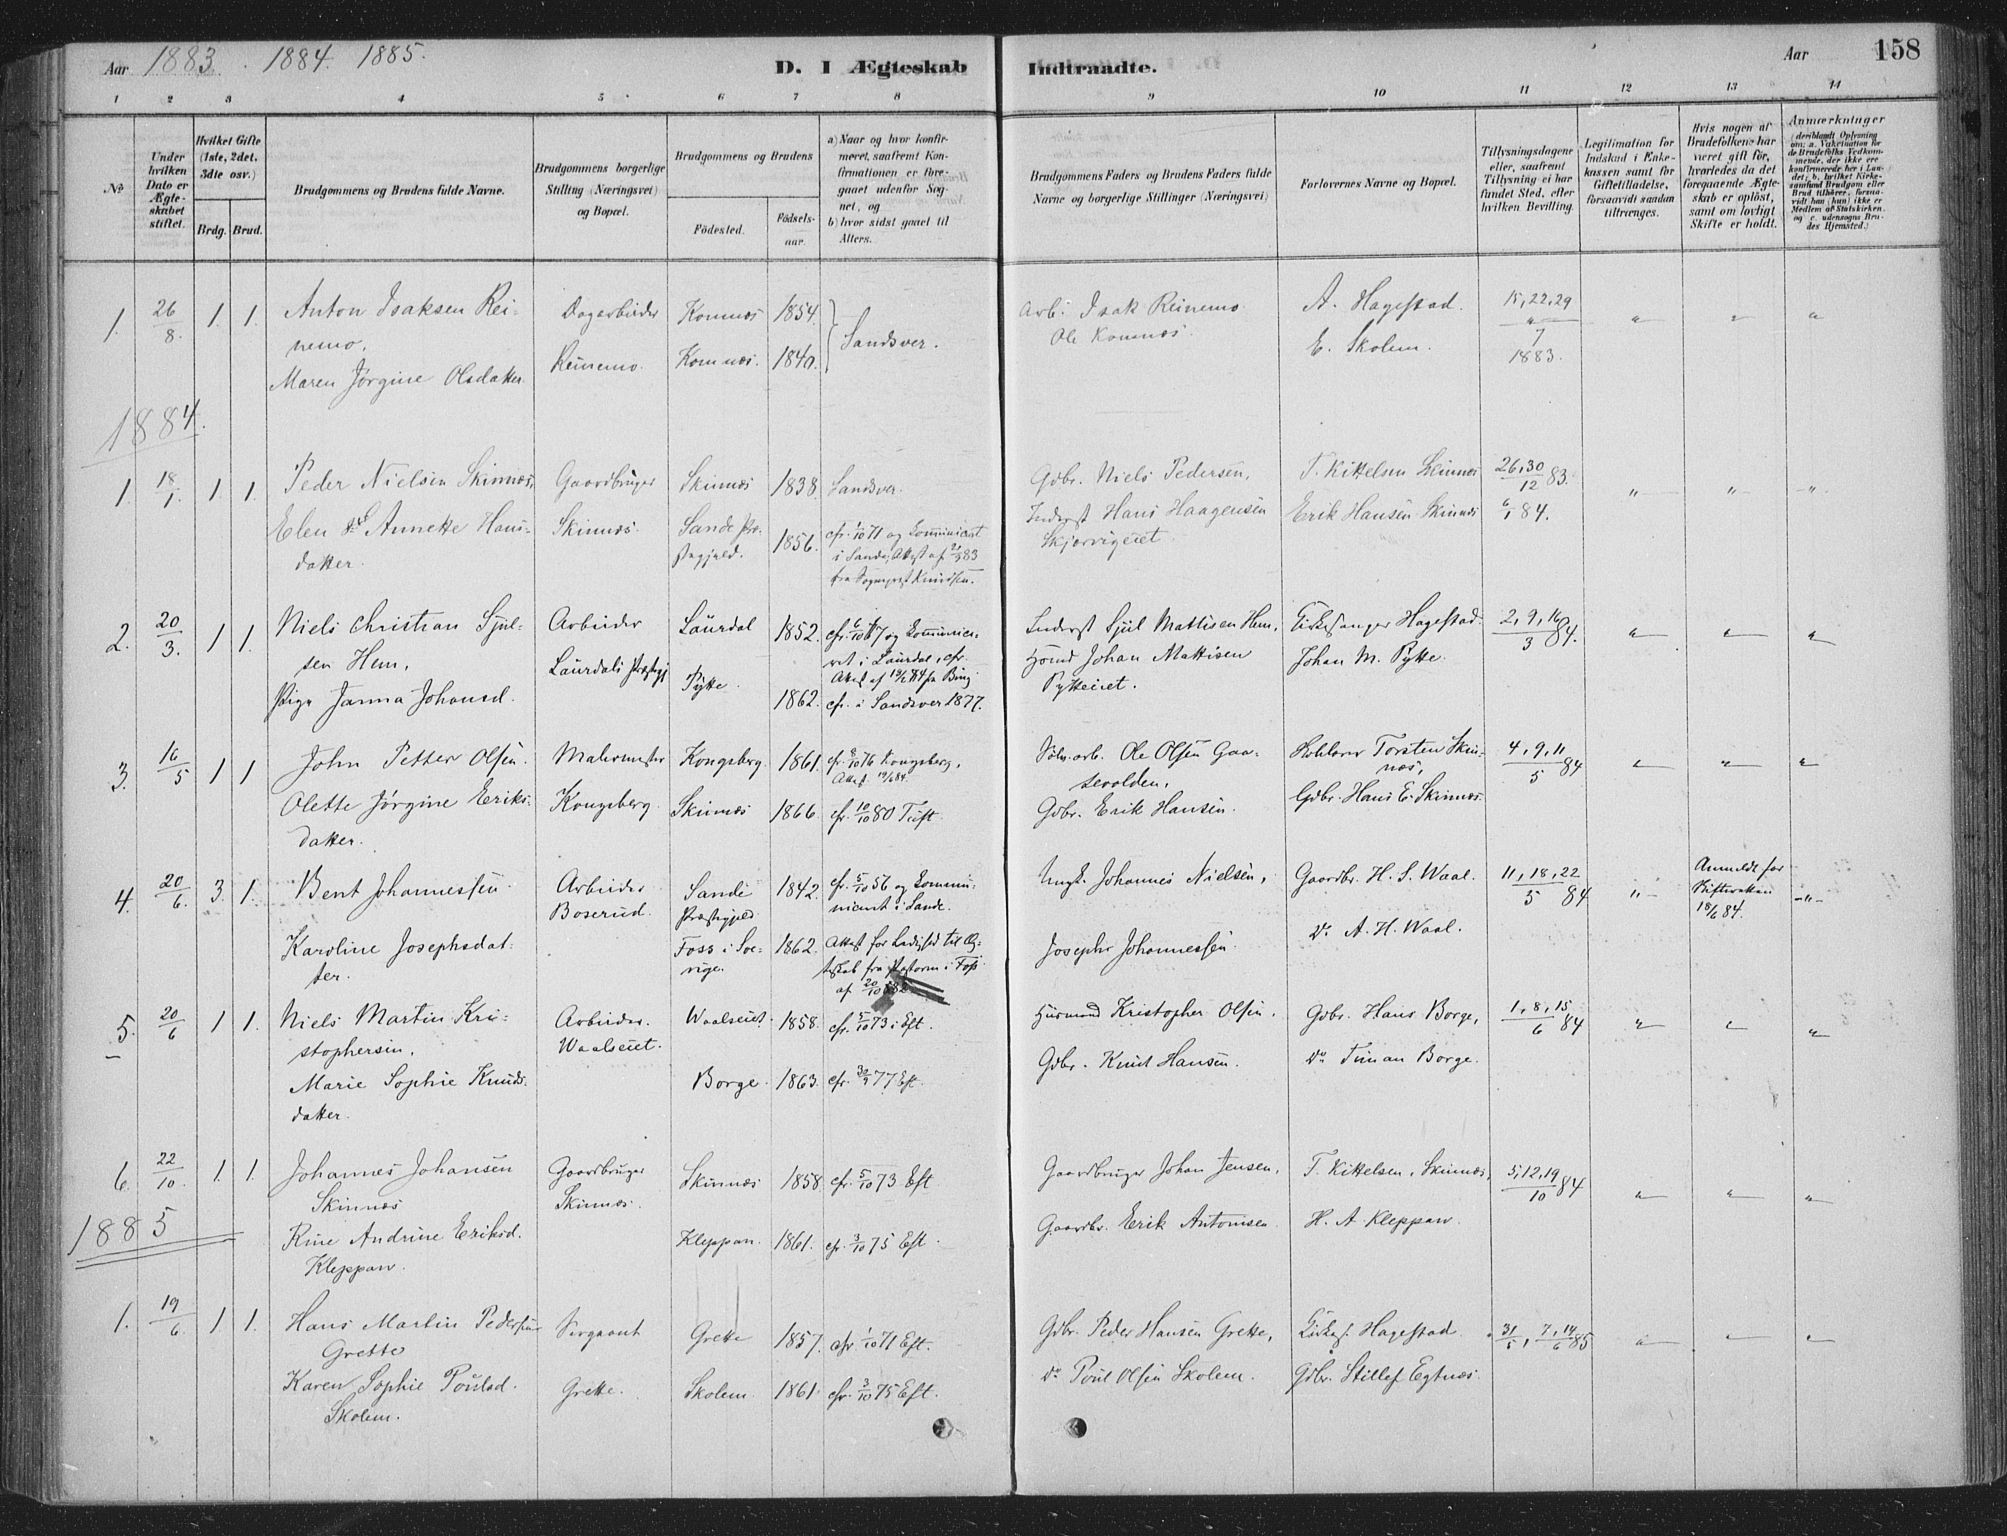 Aar 1883. 1884. 1885.
D. I Ægteskab
Indtraadte.
Aar
158
1 2 3 4 5 6 7 8 9 10 11 12 13 14
No.
Under hvilken Dato er Ægteskabet stiftet.
Hvilket Gifte (1ste, 2det, 3die osv.)
Brdg. Brud.
Brudgommens og Brudens fulde Navne.
Brudgommens borgerlige Stilling (Næringsvei) og Bopæl.
Brudgommens og Brudens
Födested.
Födselsaar.
a) Naar og hvor konfirmeret, saafremt Konfirmationen er foregaaet udenfor Sognet, og
b) hvor sidst gaaet til Alters.
Brudgommens Faders og Brudens Faders fulde Navne og borgerlige Stillinger (Næringsvei)
Forlovernes Navne og Bopæl.
Tillysningsdagene eller, saafremt Tillysning ei har fundet Sted, efter hvilken Bevilling.
Legitimation for Indskud i Enkekassen samt for Giftetilladelse, forsaavidt saadan tiltrænges.
Hvis nogen af Brudefolkene har været gift för, hvorledes da det foregaaende Ægteskab er oplöst, samt om lovligt Skifte er holdt.
Anmærkninger
1. 26/8. 1. 1. Anton Isaksen Reinemo,
Dagarbeider Komnæs 1854. Sandsver.
Arb. Isak Reinemo A. Hagestad. 15, 22, 29/7 1883.
Maren Jørgine Olsdatter Reinemo. Komnæs. 1840.
Ole Komnæs. E. Skolem.
1884.
1. 18/1. 1. 1. Peder Nielsen Skinnæs,
Gaardbruger Skinnæs 1838. Sandsver.
Gdbr. Niels Pedersen, T. Kittelsen Skinnæs 26, 30/12 83.
Elen Annette Hansdatter. Skinnæs. Sande Præstegjeld. 1856. cfr. 1/10 71 og Communicert i Sande,
Inderst Hans Haagensen Skjørvigeiet. Erik Hansen Skinnæs 6/1 84.
2. 20/3. 1 1. Niels Christian Sjulsen Hem,
Arbeider Laurdal 1852. cfr. 6/10 67 og Communiceret i Laurdal, cfr.
Inderst Sjul Mattisen Hem, Kirkesanger Hagestad 2, 9, 16/3 84.
Pige Janna Johansd. Laurdals Præstegj Pytte. 1862. cfr. i Sandsver 1877.
Husmd Johan Mattisen Pytteeiet. Johan M. Pytte.
3. 16/5 1 1 John Petter Olsen.
Malermester Kongsberg. 1861. cfr. 8/10 76 Kongsberg,
Sølv.arb. Ole Olsen Gaasevolden, Torsten Skinnæs, 4, 9, 11/5 84
Olette Jørgine Eriksdatter. Kongsberg. Skinnæs 1866. cfr. 10/10 80 Tuft.
Gdbr. Erik Hansen. Gdbr. Hans E. Skinnæs.
4. 20/6. 3. 1. Bent Johannessen.
Arbeider Boserud. Sande Præstegjeld 1842. cfr. 5/10 56 og Communicent i Sande.
Ungk. Johannes Nielsen, Gaardbr. H. S. Waal. 11, 18, 22/5 84 Anmeldt for Skifteretten 18/6 84.
Karoline Josephsdatter. Foss i Sverige. 1862. Attest for Ledighed til Ægteskab fra Pastoren i Foss af 20/10
Joseph Johannessen. Do A. H. Waal.
5. 20/6 1 1. Niels Martin Kristophersen,
Arbeider. Waalseiet. Waalseiet. 1858. cfr. 5/10 73 i Eft.
Husmand Kristopher Olsen, Gdbr. Hans Borge, 1, 8, 15/6 84
Marie Sophie Knudsdatter. Borge. 1863. cfr. 30/9 77 Eft.
Gdbr. Knut Hansen. Do Timan Borge.
6. 22/10. 1. 1. Johannes Johansen Skinnæs
Gaardbruger Skinnæs. Skinnæs 1858 cfr. 5/10 73 Eft
Gaardbruger Johan Jensen, T. Kittelsen, Skinnæs, 5, 12, 19/10 84
Rine Andrine Eriksd. Kleppan. Kleppan. 1861. cfr. 3/10 75 Eft.
Gaardbr. Erik Antonisen. H. A. Kleppan.
1885
1. 19/6. 1 1. Hans Martin Pedersen Grette
Sergeant Grette 1857. cfr. 1/10 71 Eft.
Gdbr. Peder Hansen Grette, Kirkes. Hagestad 31/5, 7, 14/6 85
Karen Sophie Poulsd. Skolem. Grette. Skolem 1861 cfr. 3/10 75 Eft.
do Poul Olsen Skolem. Gdbr. Stillef Egtnæs.